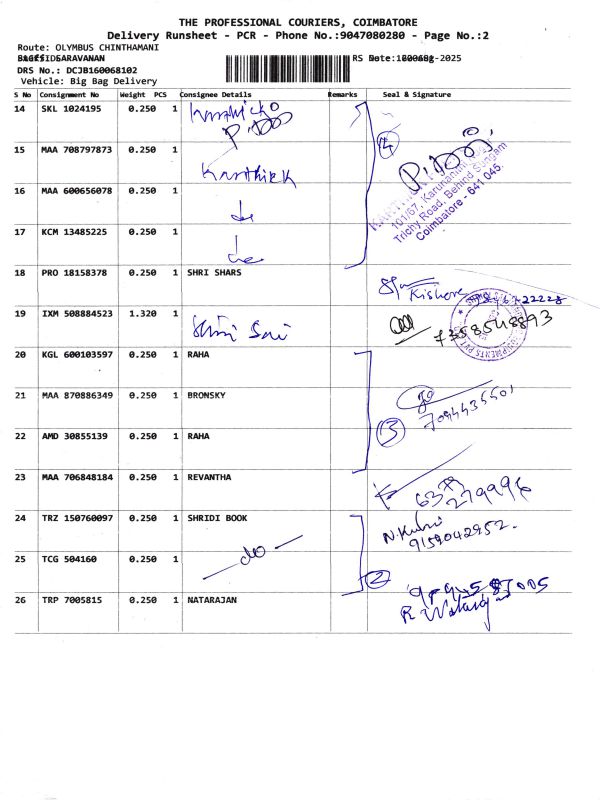 THE PROFESSIONAL COURIERS, COIMBATORE
Delivery Runsheet - PCR - Phone No.:9047080280 - Page No.:2
Route: OLYMBUS CHINTHAMANI
SARAVANAN
DRS No.: DCJB160068102
Vehicle: Big Bag Delivery
S No Consignment No Weight PCS Consignee Details Remarks Seal & Signature
14 SKL 1024195 0.250 1
15 MAA 708797873 0.250 1 Karthick
16 MAA 600656078 0.250 1 do
17 KCM 13485225 0.250 1 do
4
101/67, Karunanithi
Trichy Road, Behind Sungam
Coimbatore - 641 045.
18 PRO 18158378 0.250 1 SHRI SHARS Kishore
19 IXM 508884523 1.320 1 Shri Sai 7358548893
20 KGL 600103597 0.250 1 RAHA
21 MAA 870886349 0.250 1 BRONSKY 7094435501
22 AMD 30855139 0.250 1 RAHA
3
23 MAA 706848184 0.250 1 REVANTHA
24 TRZ 150760097 0.250 1 SHRIDI BOOK 9159042952
25 TCG 504160 0.250 1 do
2
26 TRP 7005815 0.250 1 NATARAJAN